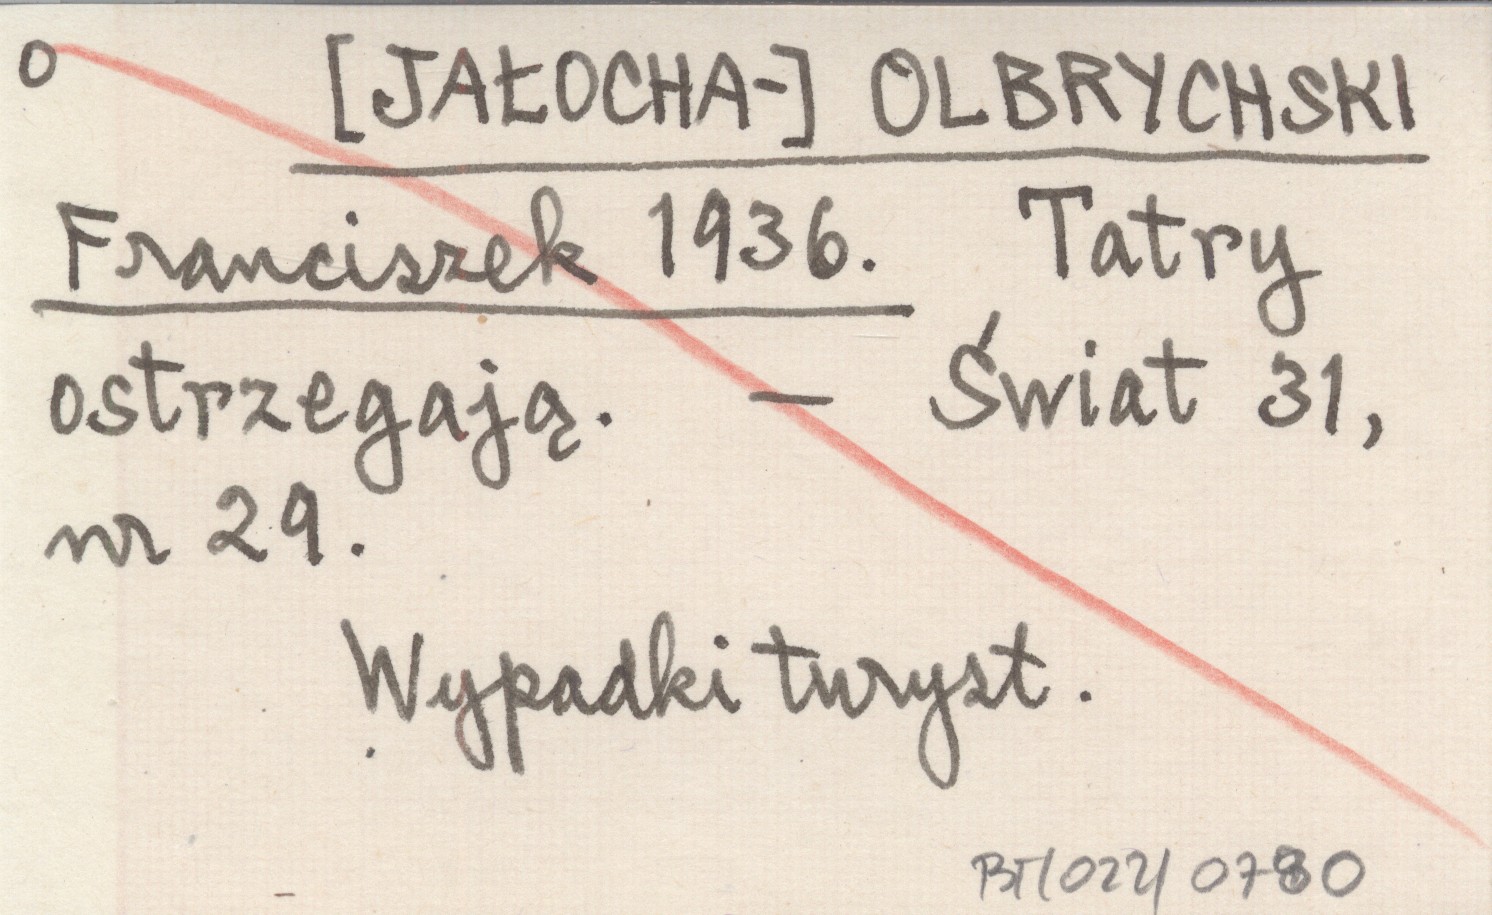 o [JAŁOCHA-] OLBRYCHSKI
Franciszek 1936. Tatry
ostrzegają. — Świat 31,
nr 29.
Wypadki turyst.
BT/022/0780